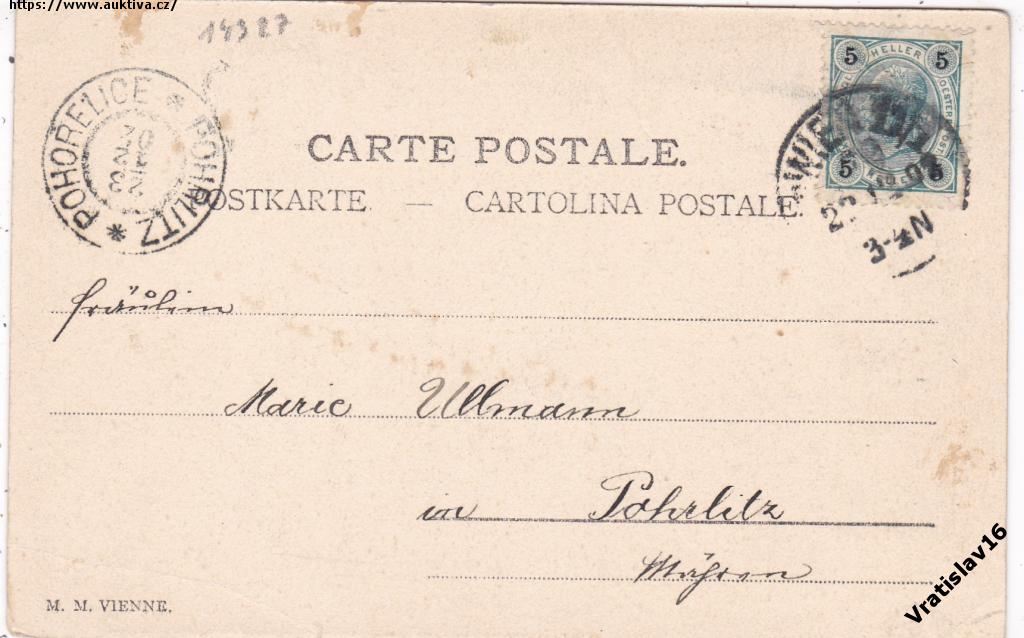 https://www.auktiva.cz/
14327
POHOŘELICE * POHRLITZ *
5 HELLER 5
5 5
WIEN
3-4N
CARTE POSTALE.
POSTKARTE — CARTOLINA POSTALE.
Fräulein
Marie Ullmann
in Pohrlitz
Mähren
M. M. VIENNE.
Vratislav16